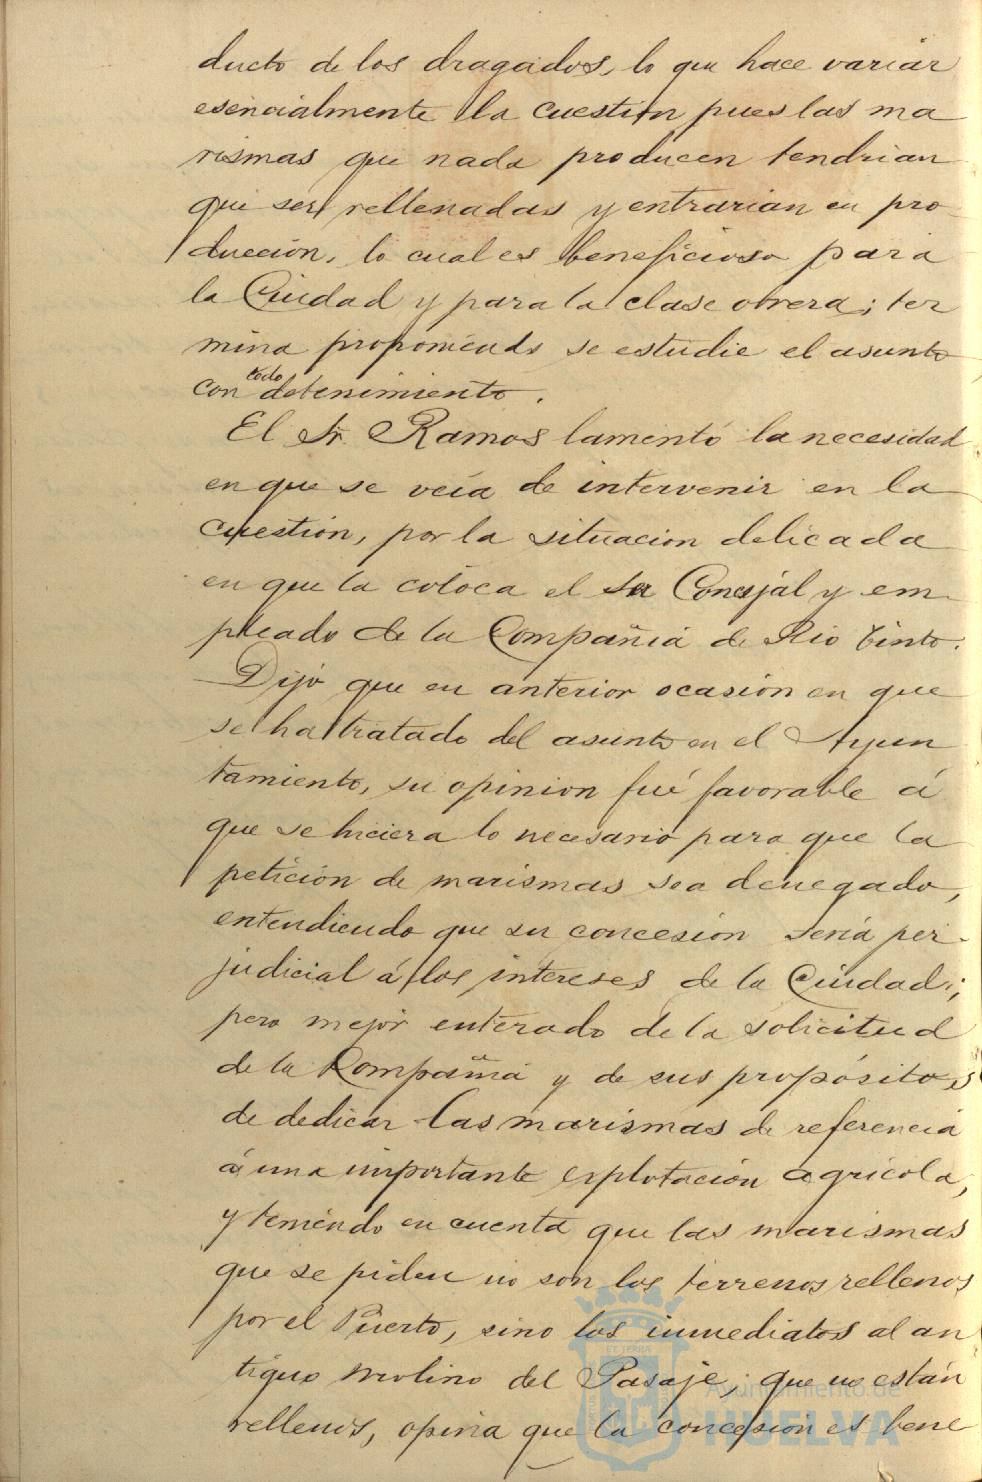 ducto de los dragados, lo que hace variar
esencialmente la cuestión pues las ma
rismas que nada producen tendrian
que ser rellenadas y entrarian en pro
ducción, lo cual es beneficioso para
la Ciudad y para la clase obrera; ter
mina proponiendo se estudie el asunto
con todo detenimiento.
El Sr. Ramos lamentó la necesidad
en que se veía de intervenir en la
cuestión, por la situacion delicada
en que la coloca el ser Concejal y em
pleado de la Compañia de Rio Tinto.
Dijó que en anterior ocasión en que
se ha tratado del asunto en el Ayun
tamiento, su opinion fué favorable á
que se hiciera lo necesario para que la
petición de marismas sea denegado,
entendiendo que su concesión seria per-
judicial á los intereses de la Ciudad;
pero mejor enterado de la solicitud
de la Compañia y de sus propósitos
de dedicar las marismas de referencia
á una importante explotación agricola,
y teniendo en cuenta que las marismas
que se piden no son los terrenos rellenos
por el Puerto, sino los inmediatos al an
tiguo molino del Pasaje, que no están
rellenos, opina que la concesión es bene
Ayuntamiento de
HUELVA